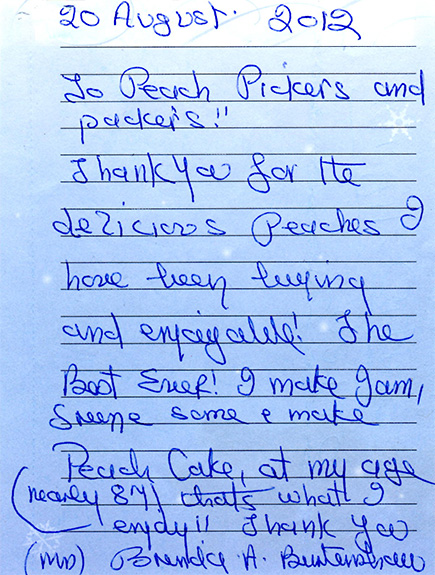 20 August. 2012
To Peach Pickers and
packers!!
Thank You for the
delicious Peaches I
have been buying
and enjoyable! The
Best Ever! I make Jam,
Freeze some & make
Peach Cake, at my age
(nearly 87) thats what I
enjoy!! Thank You
(Mrs) Brenda A.